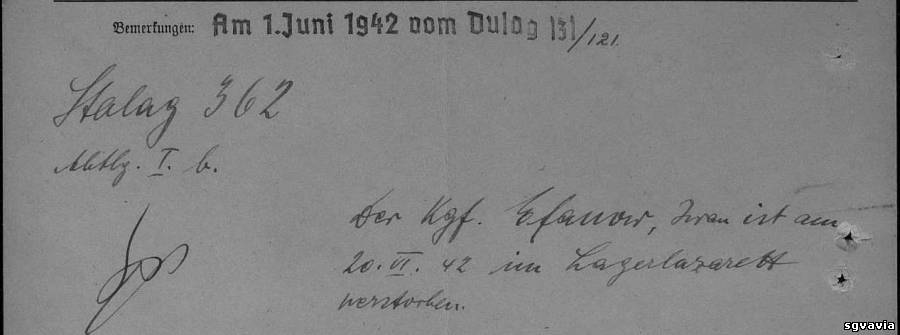 Bemerkungen: Am 1. Juni 1942 vom Dulag 131/121.
Stalag 362
Abtlg. I. b.
Der Kgf. Efanow, Iwan ist am
20. VI. 42 im Lagerlazarett
verstorben.
sgvavia